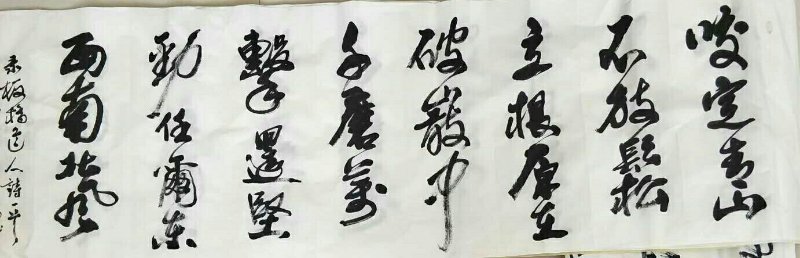 咬定青山
不放鬆
立根原在
破巖中
千磨萬
擊還堅
勁任爾東
西南北風
录板橋道人詩